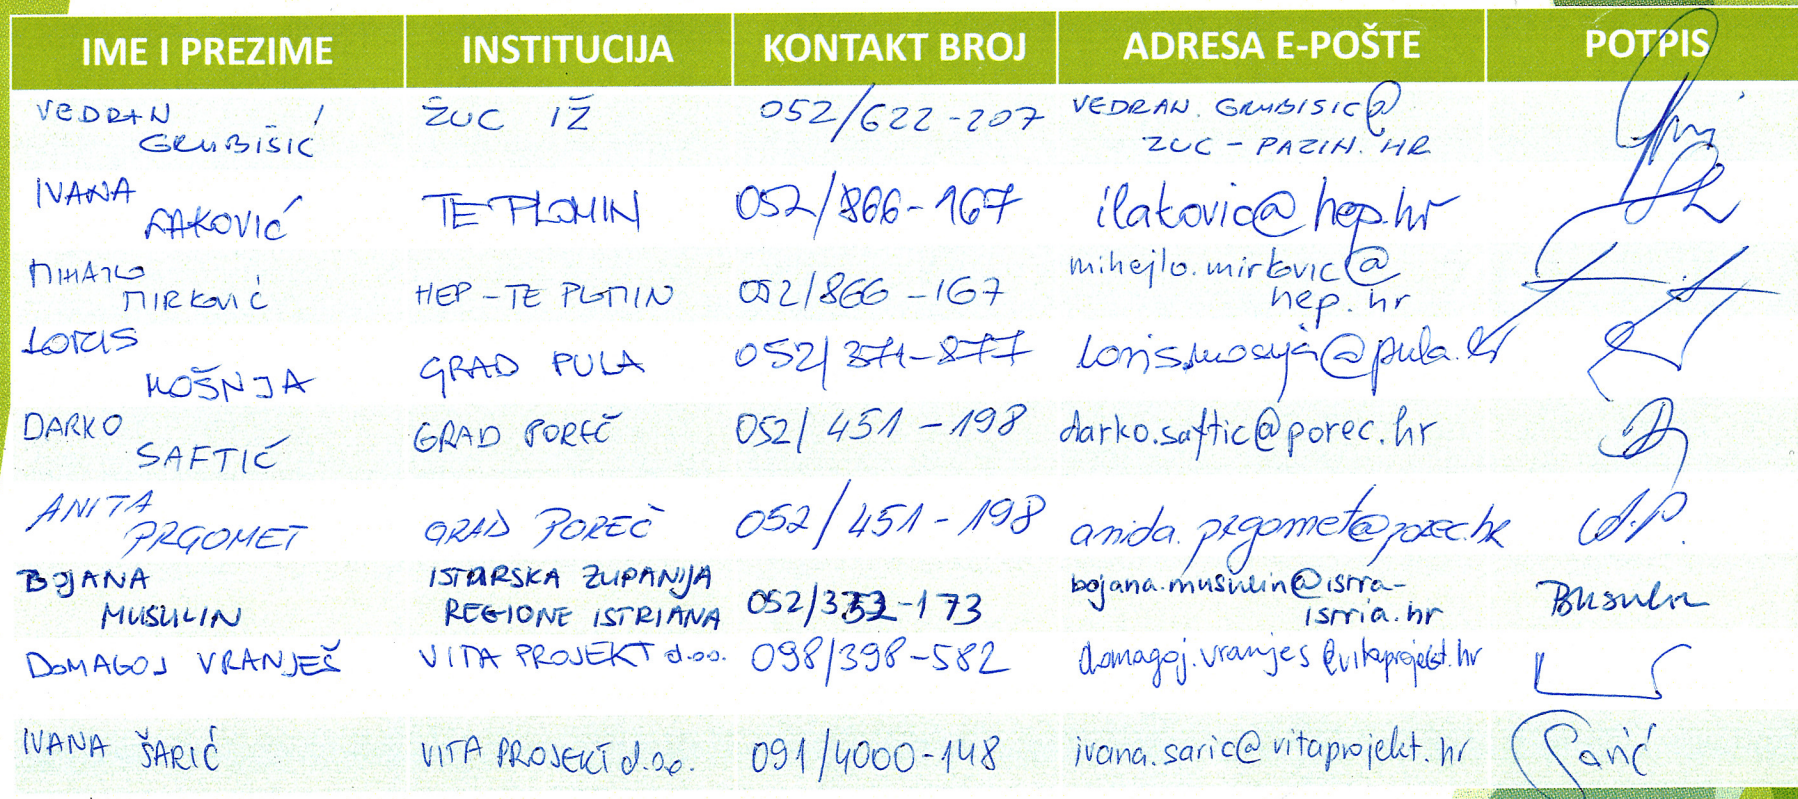 IME I PREZIME INSTITUCIJA KONTAKT BROJ ADRESA E-POŠTE POTPIS
VEDRAN ŽUC IŽ 052/622-207 VEDRAN.GRUBISIC@
GRUBIŠIĆ ZUC-PAZIN.HR
IVANA
LAKOVIĆ TE PLOMIN 052/866-167 ilakovic@hep.hr
MIHAJLO mihejlo.mirkovic@
MIRKOVIĆ HEP-TE PLOMIN 052/866-167 hep.hr
LORIS
MOŠNJA GRAD PULA 052/371-877 loris.mosnja@pula.hr
DARKO
SAFTIĆ GRAD POREČ 052/451-198 darko.saftic@porec.hr
ANITA
PRGOMET GRAD POREČ 052/451-198 anida.prgomet@porec.hr A.P.
BOJANA ISTARSKA ŽUPANIJA bojana.musulin@istra-
MUSULIN REGIONE ISTRIANA 052/352-173 istria.hr Busulin
DOMAGOJ VRANJEŠ VITA PROJEKT d.o.o. 098/398-582 domagoj.vranjes@vitaprojekt.hr
IVANA ŠARIĆ VITA PROJEKT d.o.o. 091/4000-148 ivana.saric@vitaprojekt.hr Šarić